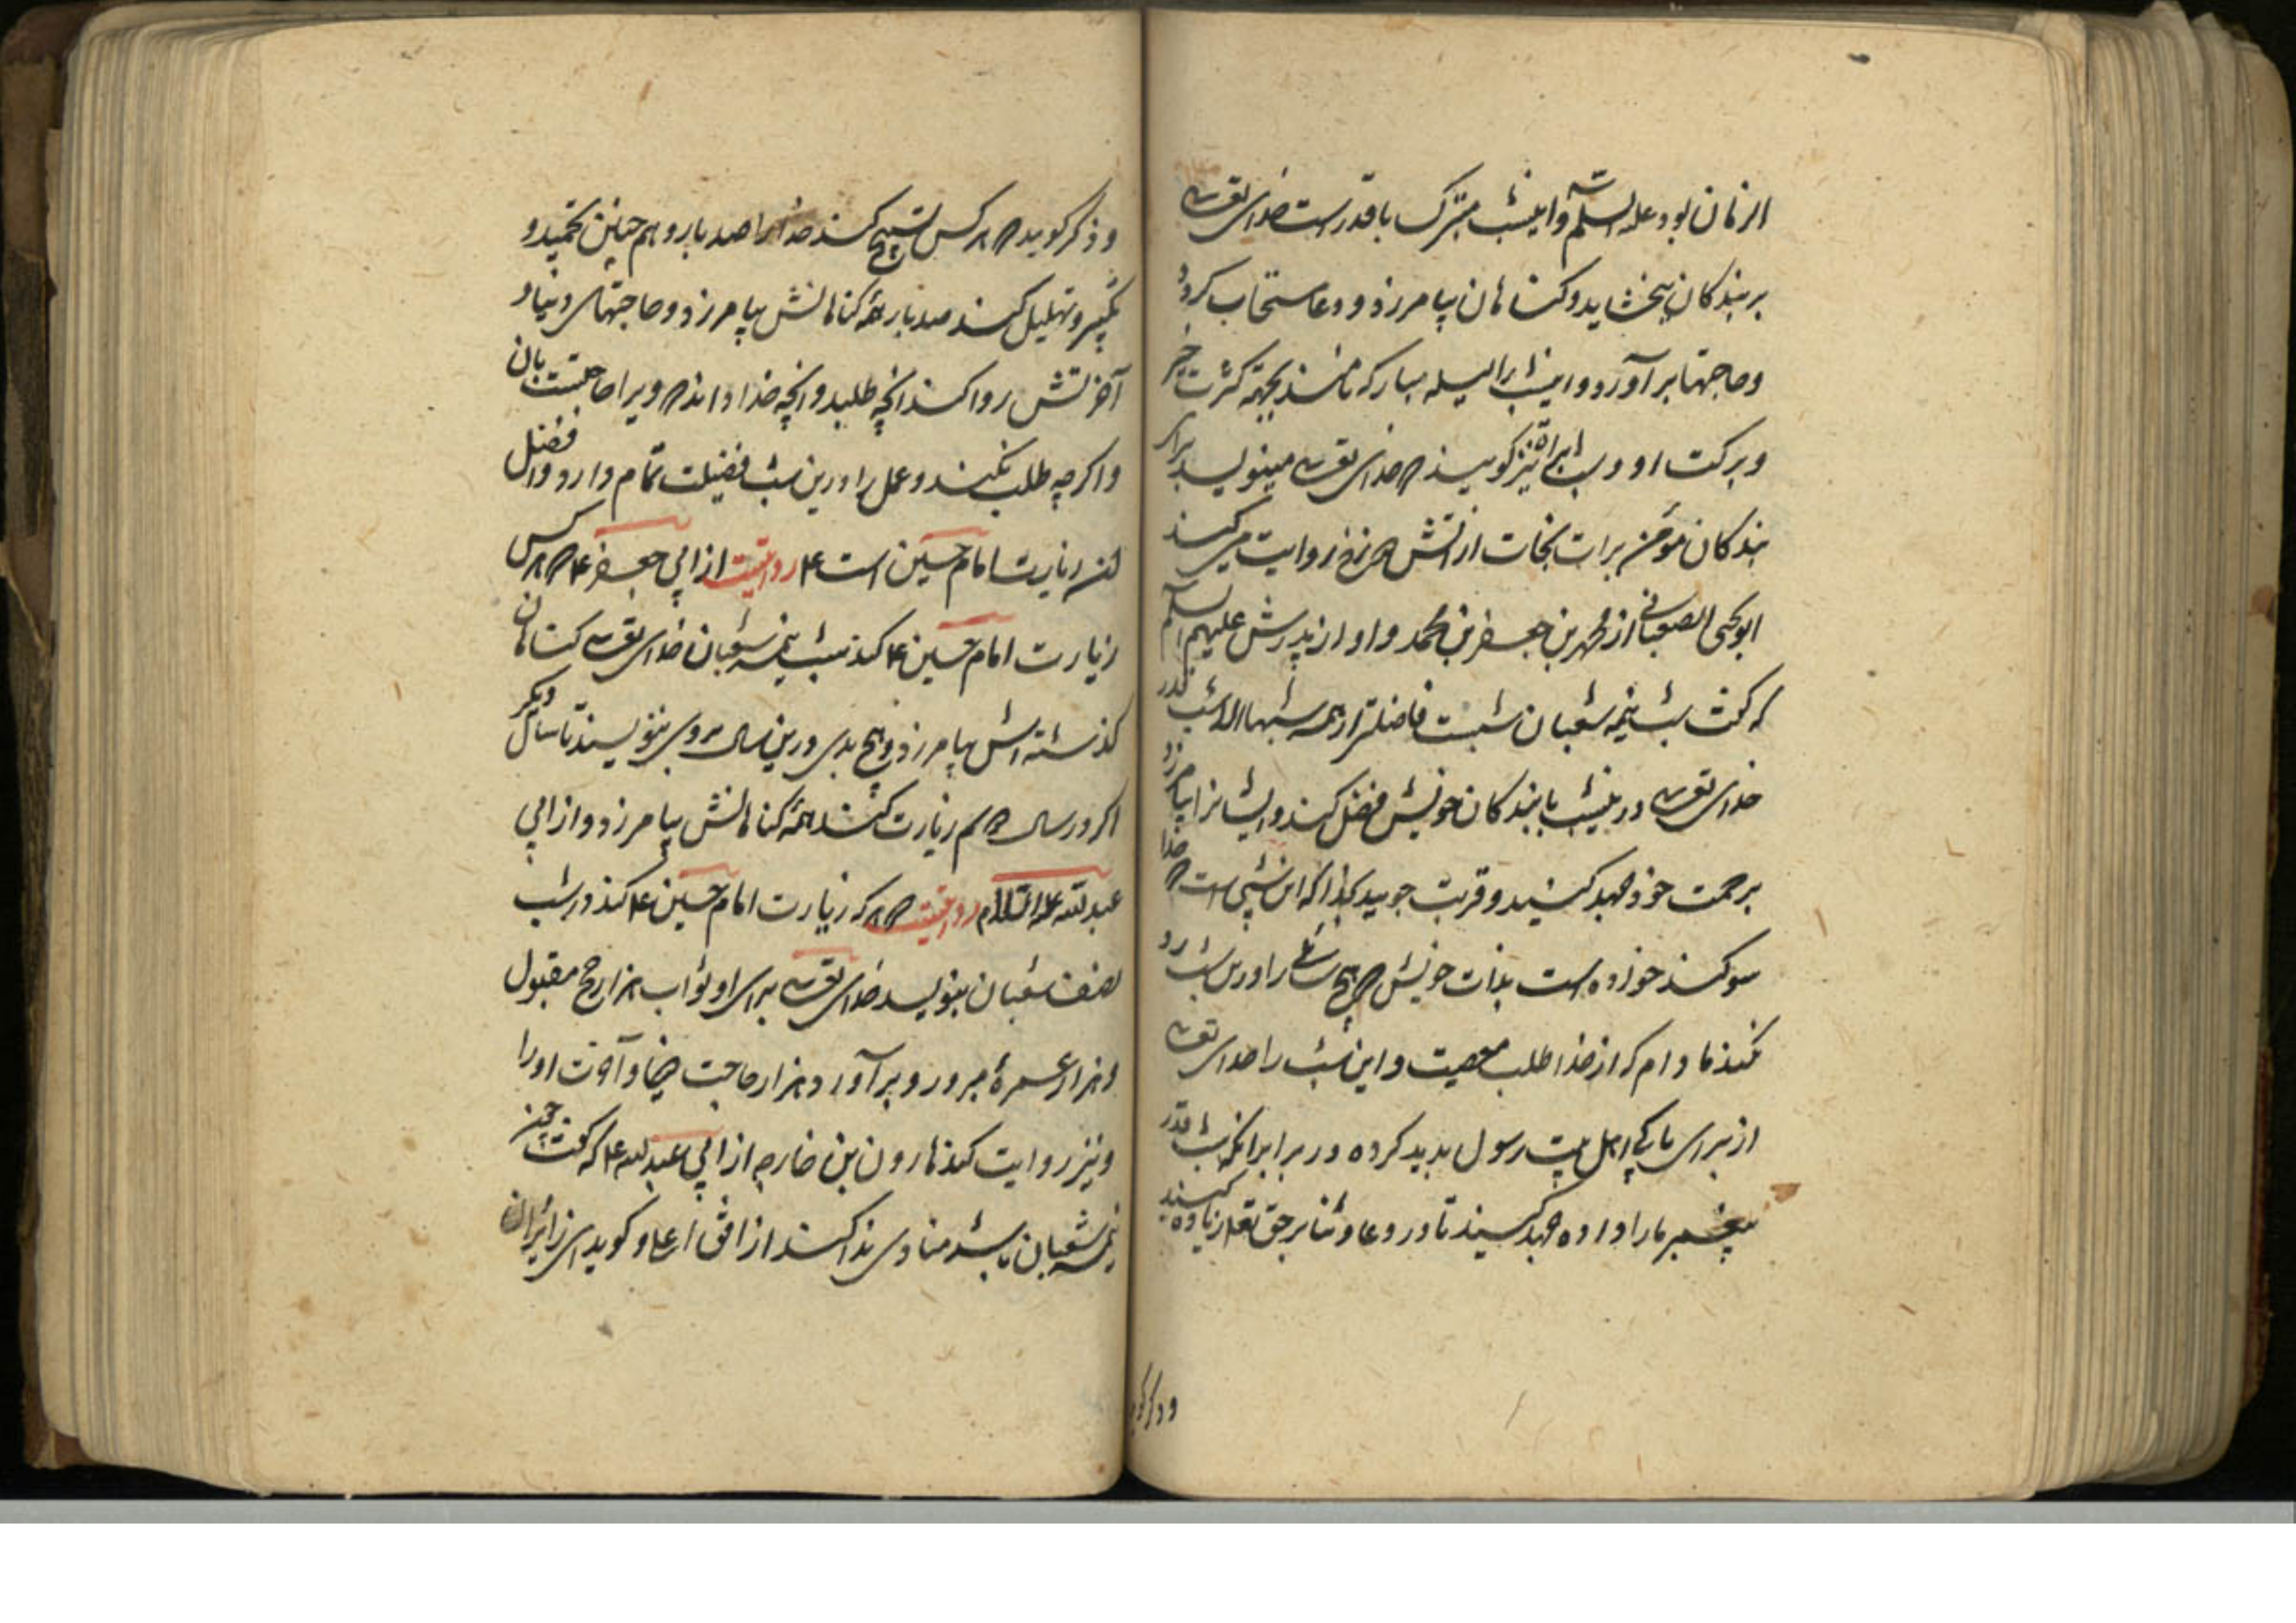 الزمان بود علیه السلم و اینشب متبرک با قدرست خدای تعالی
بر بندکان ببخشاید و کناهان بیامرزد و دعا مستجاب کرداند
و حاجتها برآورد و اینشب را لیله مبارکه نامند بجهة کثرت خیر
و برکت او و شب براة نیز کویند که خدای تعالی مینویسد برای
بندکان مؤمن برات نجات از آتش دوزخ روایت میکند
ابویحیی الصنعانی از جعفر بن محمد و او از پدرش علیهم السلم
که کفت شب نیمه شعبان شبیست فاضلتر از همه شبها الا شب قدر
خدای تعالی درینشب با بندکان خویش فضل کند و ایشانرا بیامرزد
برحمت خود جهد کنید و قربت جویید بخدا که این شبی است که خدا
سوکند خورده است بذات خویش که هیچ سائلی را درین شب رد
نکند مادام که از خدا طلب معصیت و این شب را خدای تعالی
از برای ما که اهل بیت رسول پدید کرده در برابر آنکه شب قدر
پیغمبر ما را داده جهد کنید تا در دعا و ثنا بر حق تعالی زیاده کنید
و ذکر کو
و ذکر کوید که هر کس تسبیح کند خدا را صد بار و هم چنین تحمید و
تکبیر و تهلیل کند صد بار همه کناهانش بیامرزد و حاجتهای دنیا و
آخرتش روا کند آنچه طلبد و آنچه خدا داند که ویرا حاجتست بآن
و اکر چه طلب نکند و عمل را درین شب فضیلت تمام دارد و افضل
آن زیارت امام حسین است ع روایتست از ابی جعفر ع که هر کس
زیارت امام حسین ع کند شب نیمه شعبان خدای تعالی کناهان
کذشته اش بیامرزد و هیچ بدی درین سال بروی ننویسند تا سال دیکر
اکر در سال هم زیارت کند همه کناهانش بیامرزد و از ابی
عبدالله علیه السلام روایتست که هر که زیارت امام حسین ع کند در شب
نصف شعبان بنویسد خدای تعالی برای او ثواب هزار حج مقبول
و هزار عمرهٔ مبرور و برآورد هزار حاجت دنیا و آخرت او را
و نیز روایت کند هارون بن خارجه از ابی عبدالله ع که کفت چون
نیمه شعبان باشد منادی ندا کند از افق اعلا و کوید ای زایران